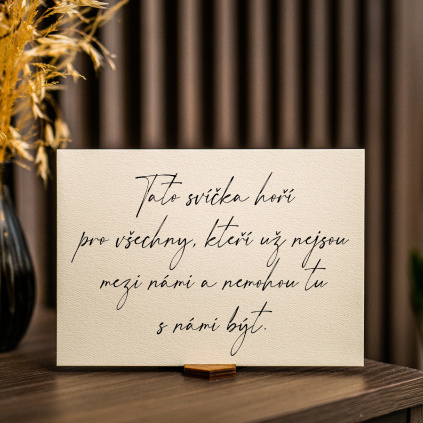 Tato svíčka hoří
pro všechny, kteří už nejsou
mezi námi a nemohou tu
s námi být.